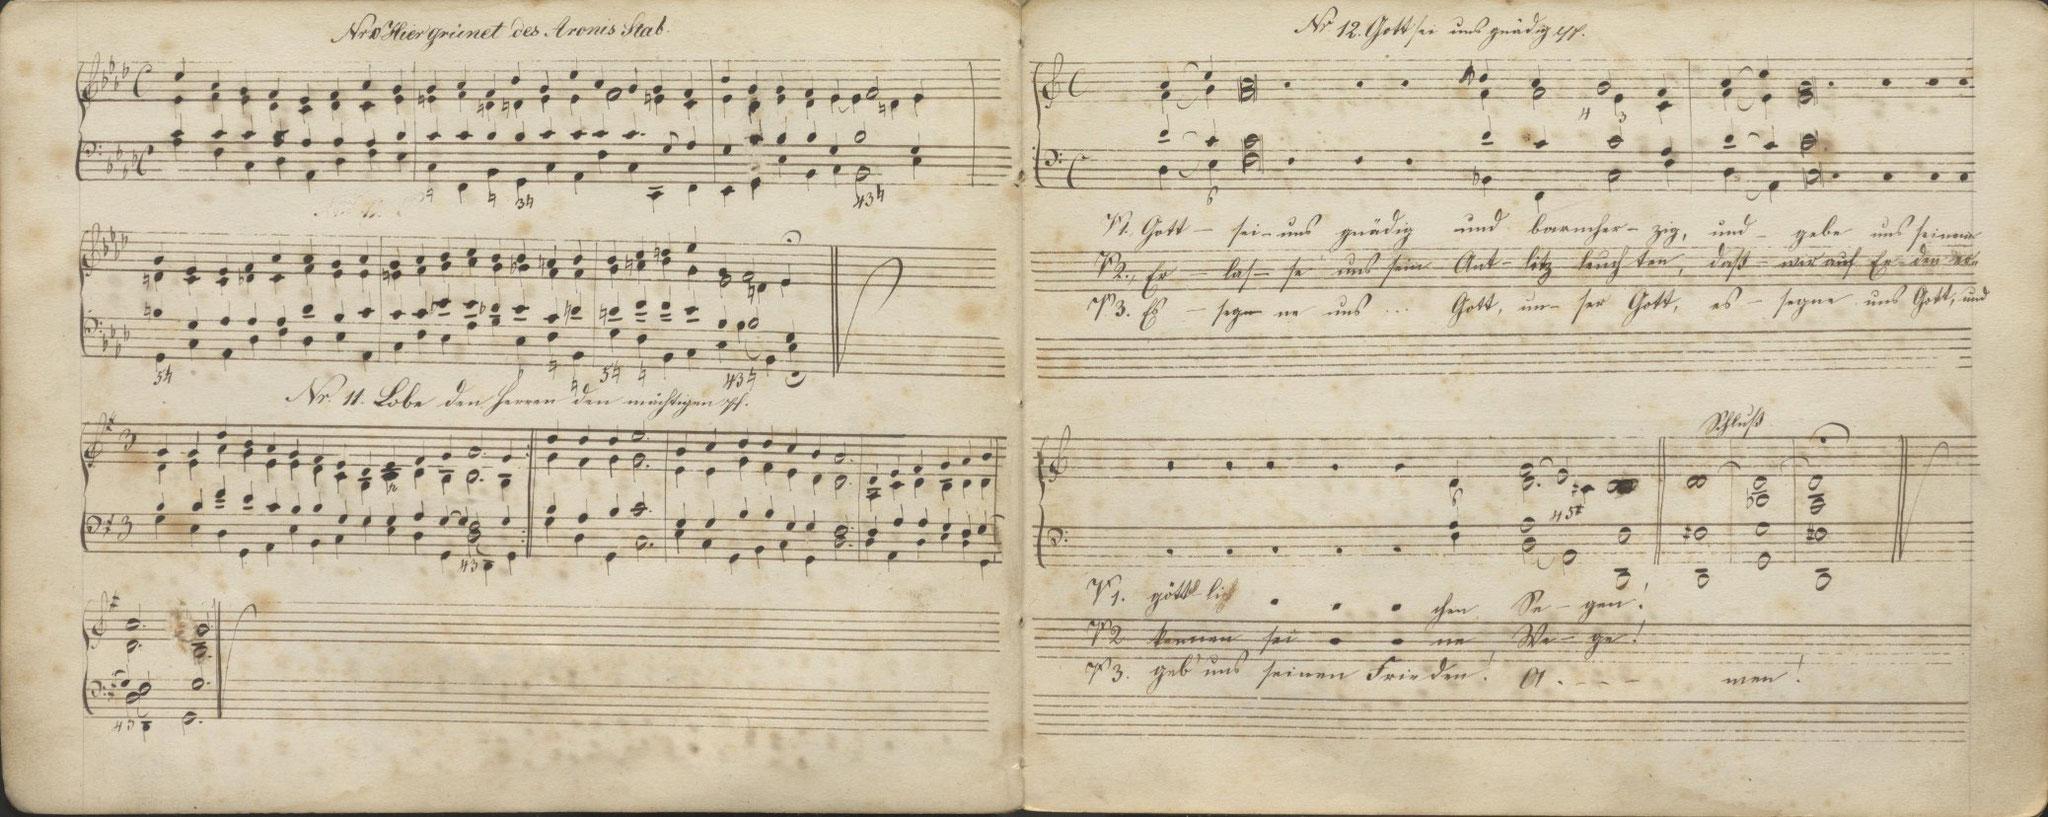 Nr. Hier grünet des Aronis Stab.
Nr. 11. Lobe den Herren den mächtigen pp.
Nr 12. Gott sei uns gnädig pp.
V1. Gott – sei – uns gnädig und barmher – zig, und – gebe uns seinen
V2., Er – las – se uns sein Ant – litz leuchten, daß – wir auf Er den er
V3. Es – segn ne uns ... Gott, un – ser Gott, es – segne uns Gott, und
Schluß
V1. göttli . . . chen Se – gen!
V2 kennen sei . . ne We – ge!
V3. geb' uns seinen Frieden! A - - - - men!